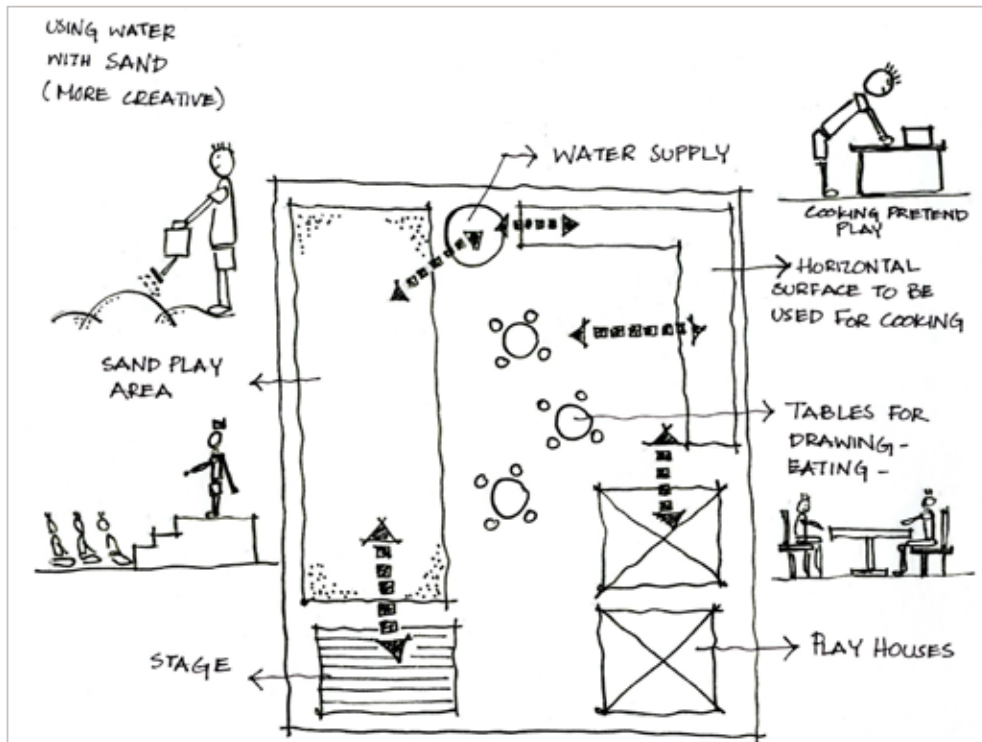 USING WATER
WITH SAND
(MORE CREATIVE)
WATER SUPPLY
COOKING PRETEND
PLAY
HORIZONTAL
SURFACE TO BE
USED FOR COOKING
SAND PLAY
AREA
TABLES FOR
DRAWING -
EATING -
STAGE
PLAY HOUSES